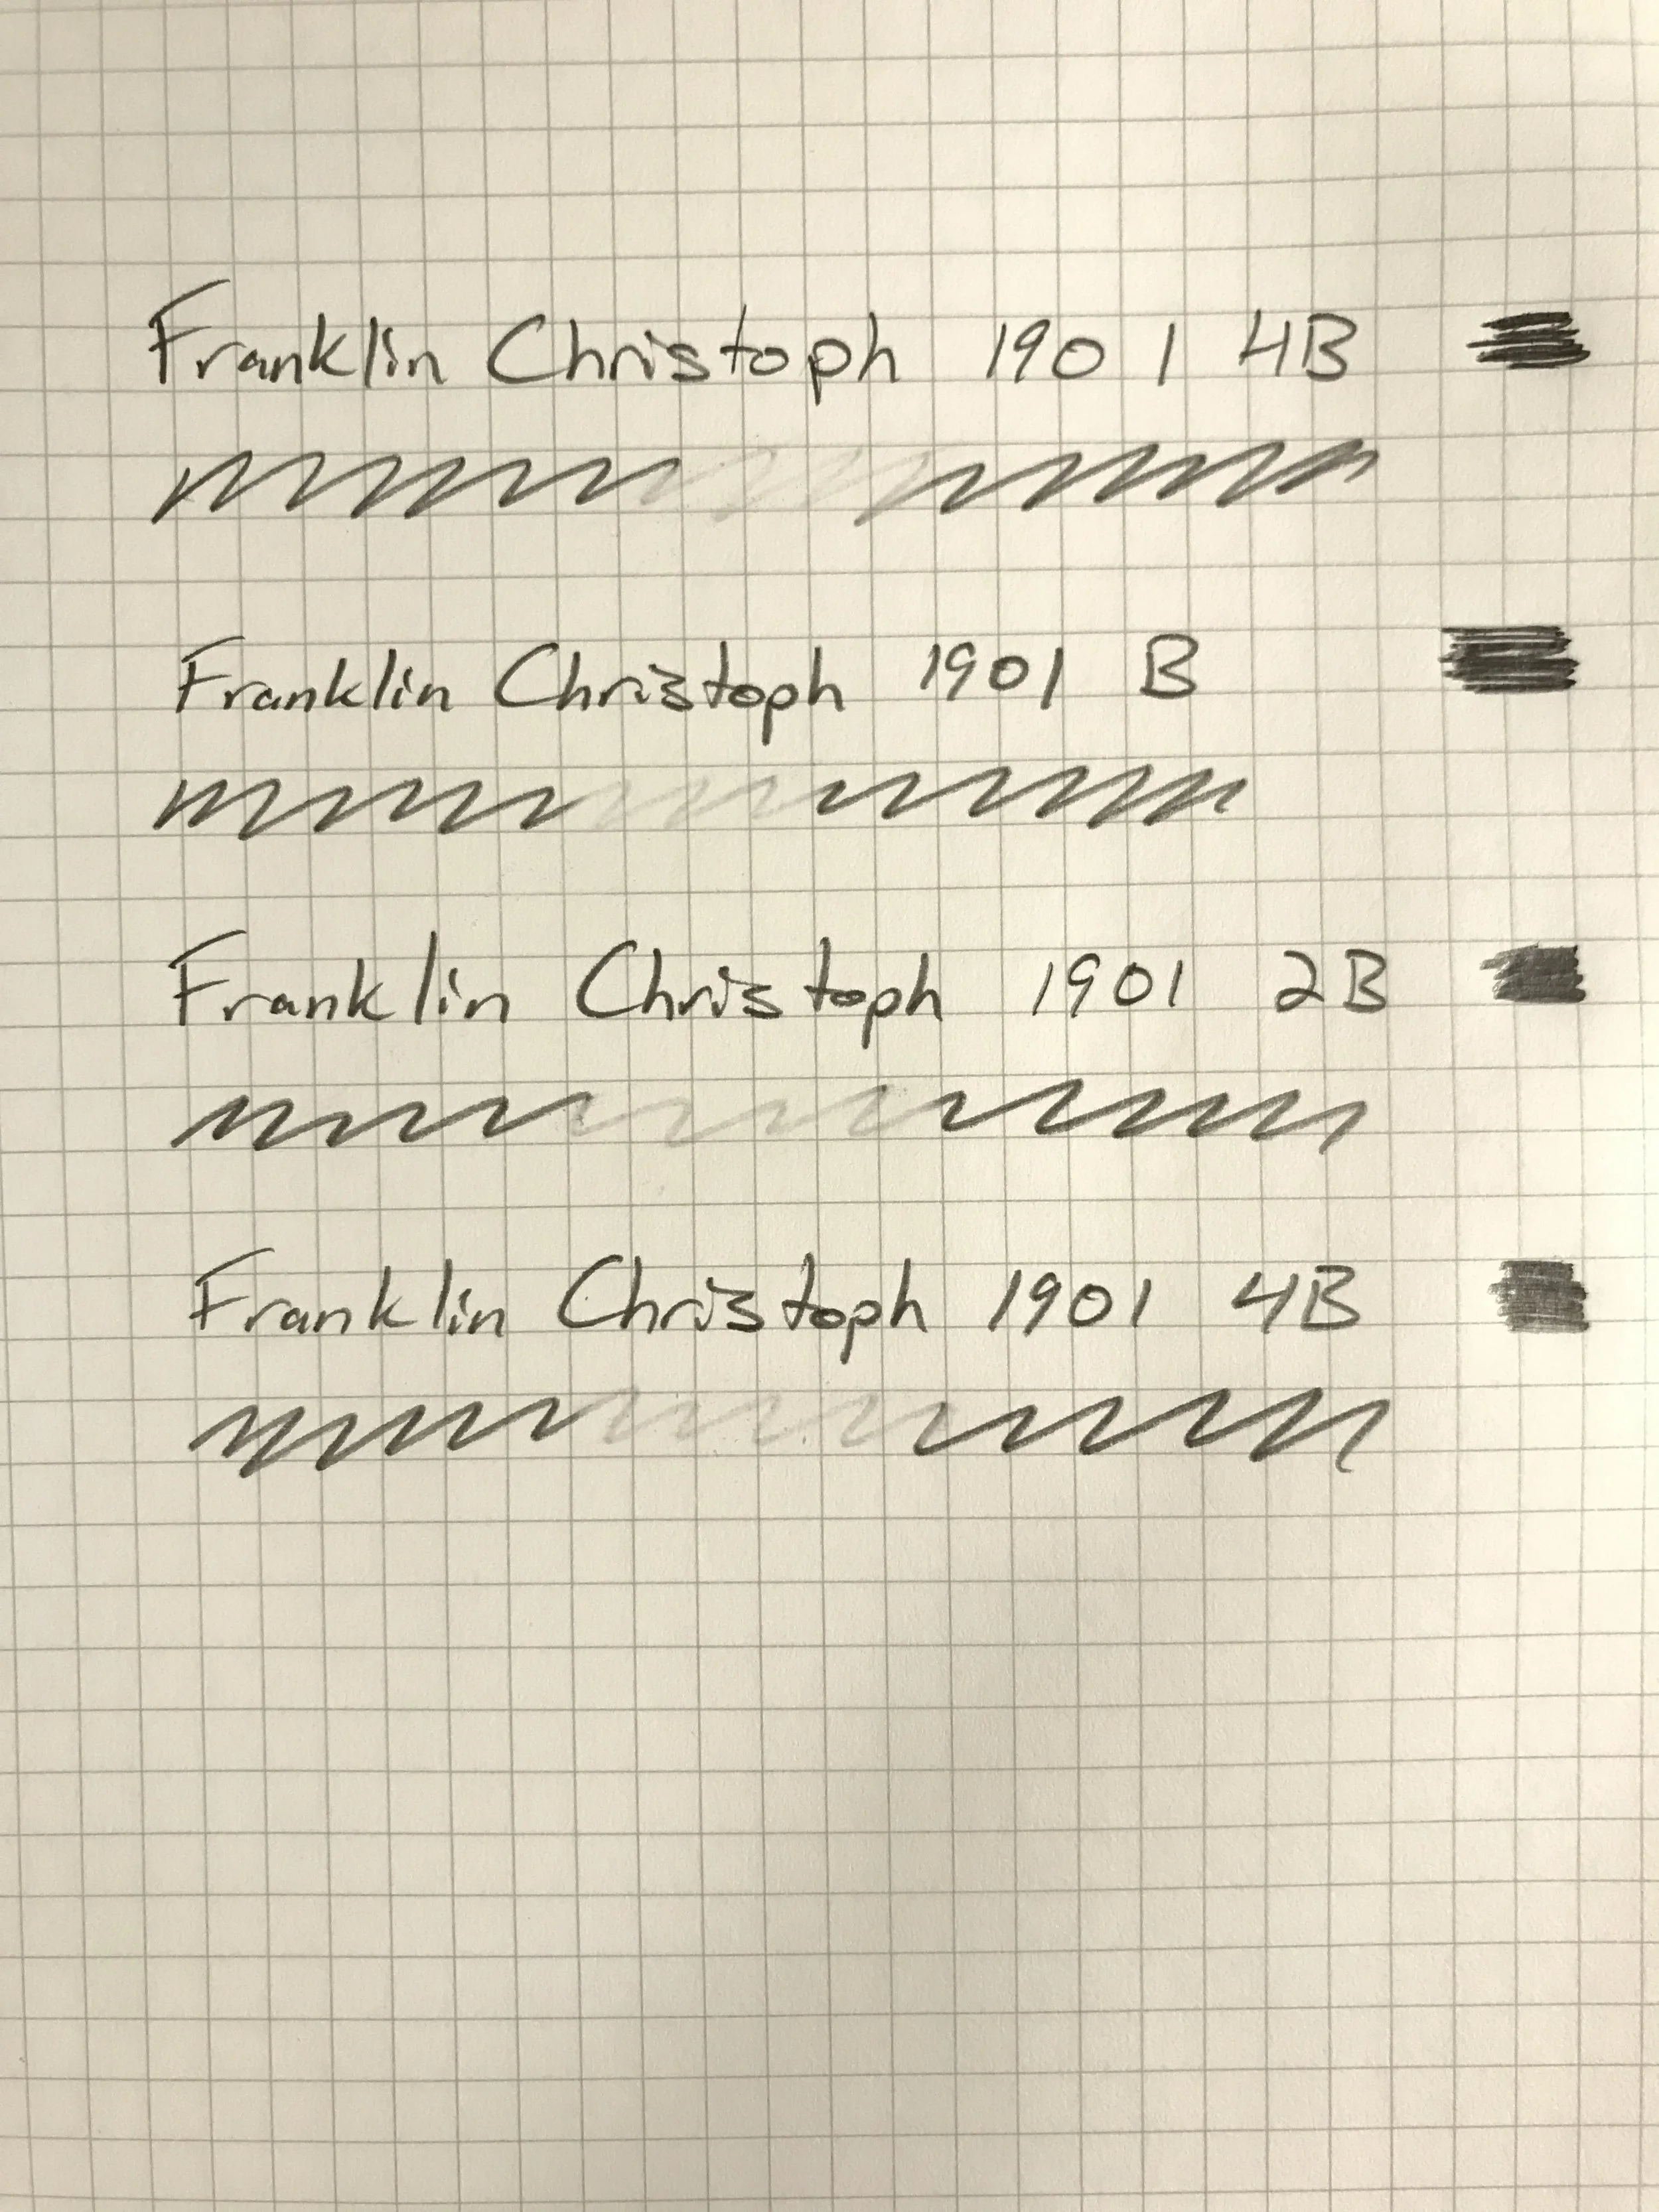 Franklin Christoph 1901 4B
Franklin Christoph 1901 B
Franklin Christoph 1901 2B
Franklin Christoph 1901 4B